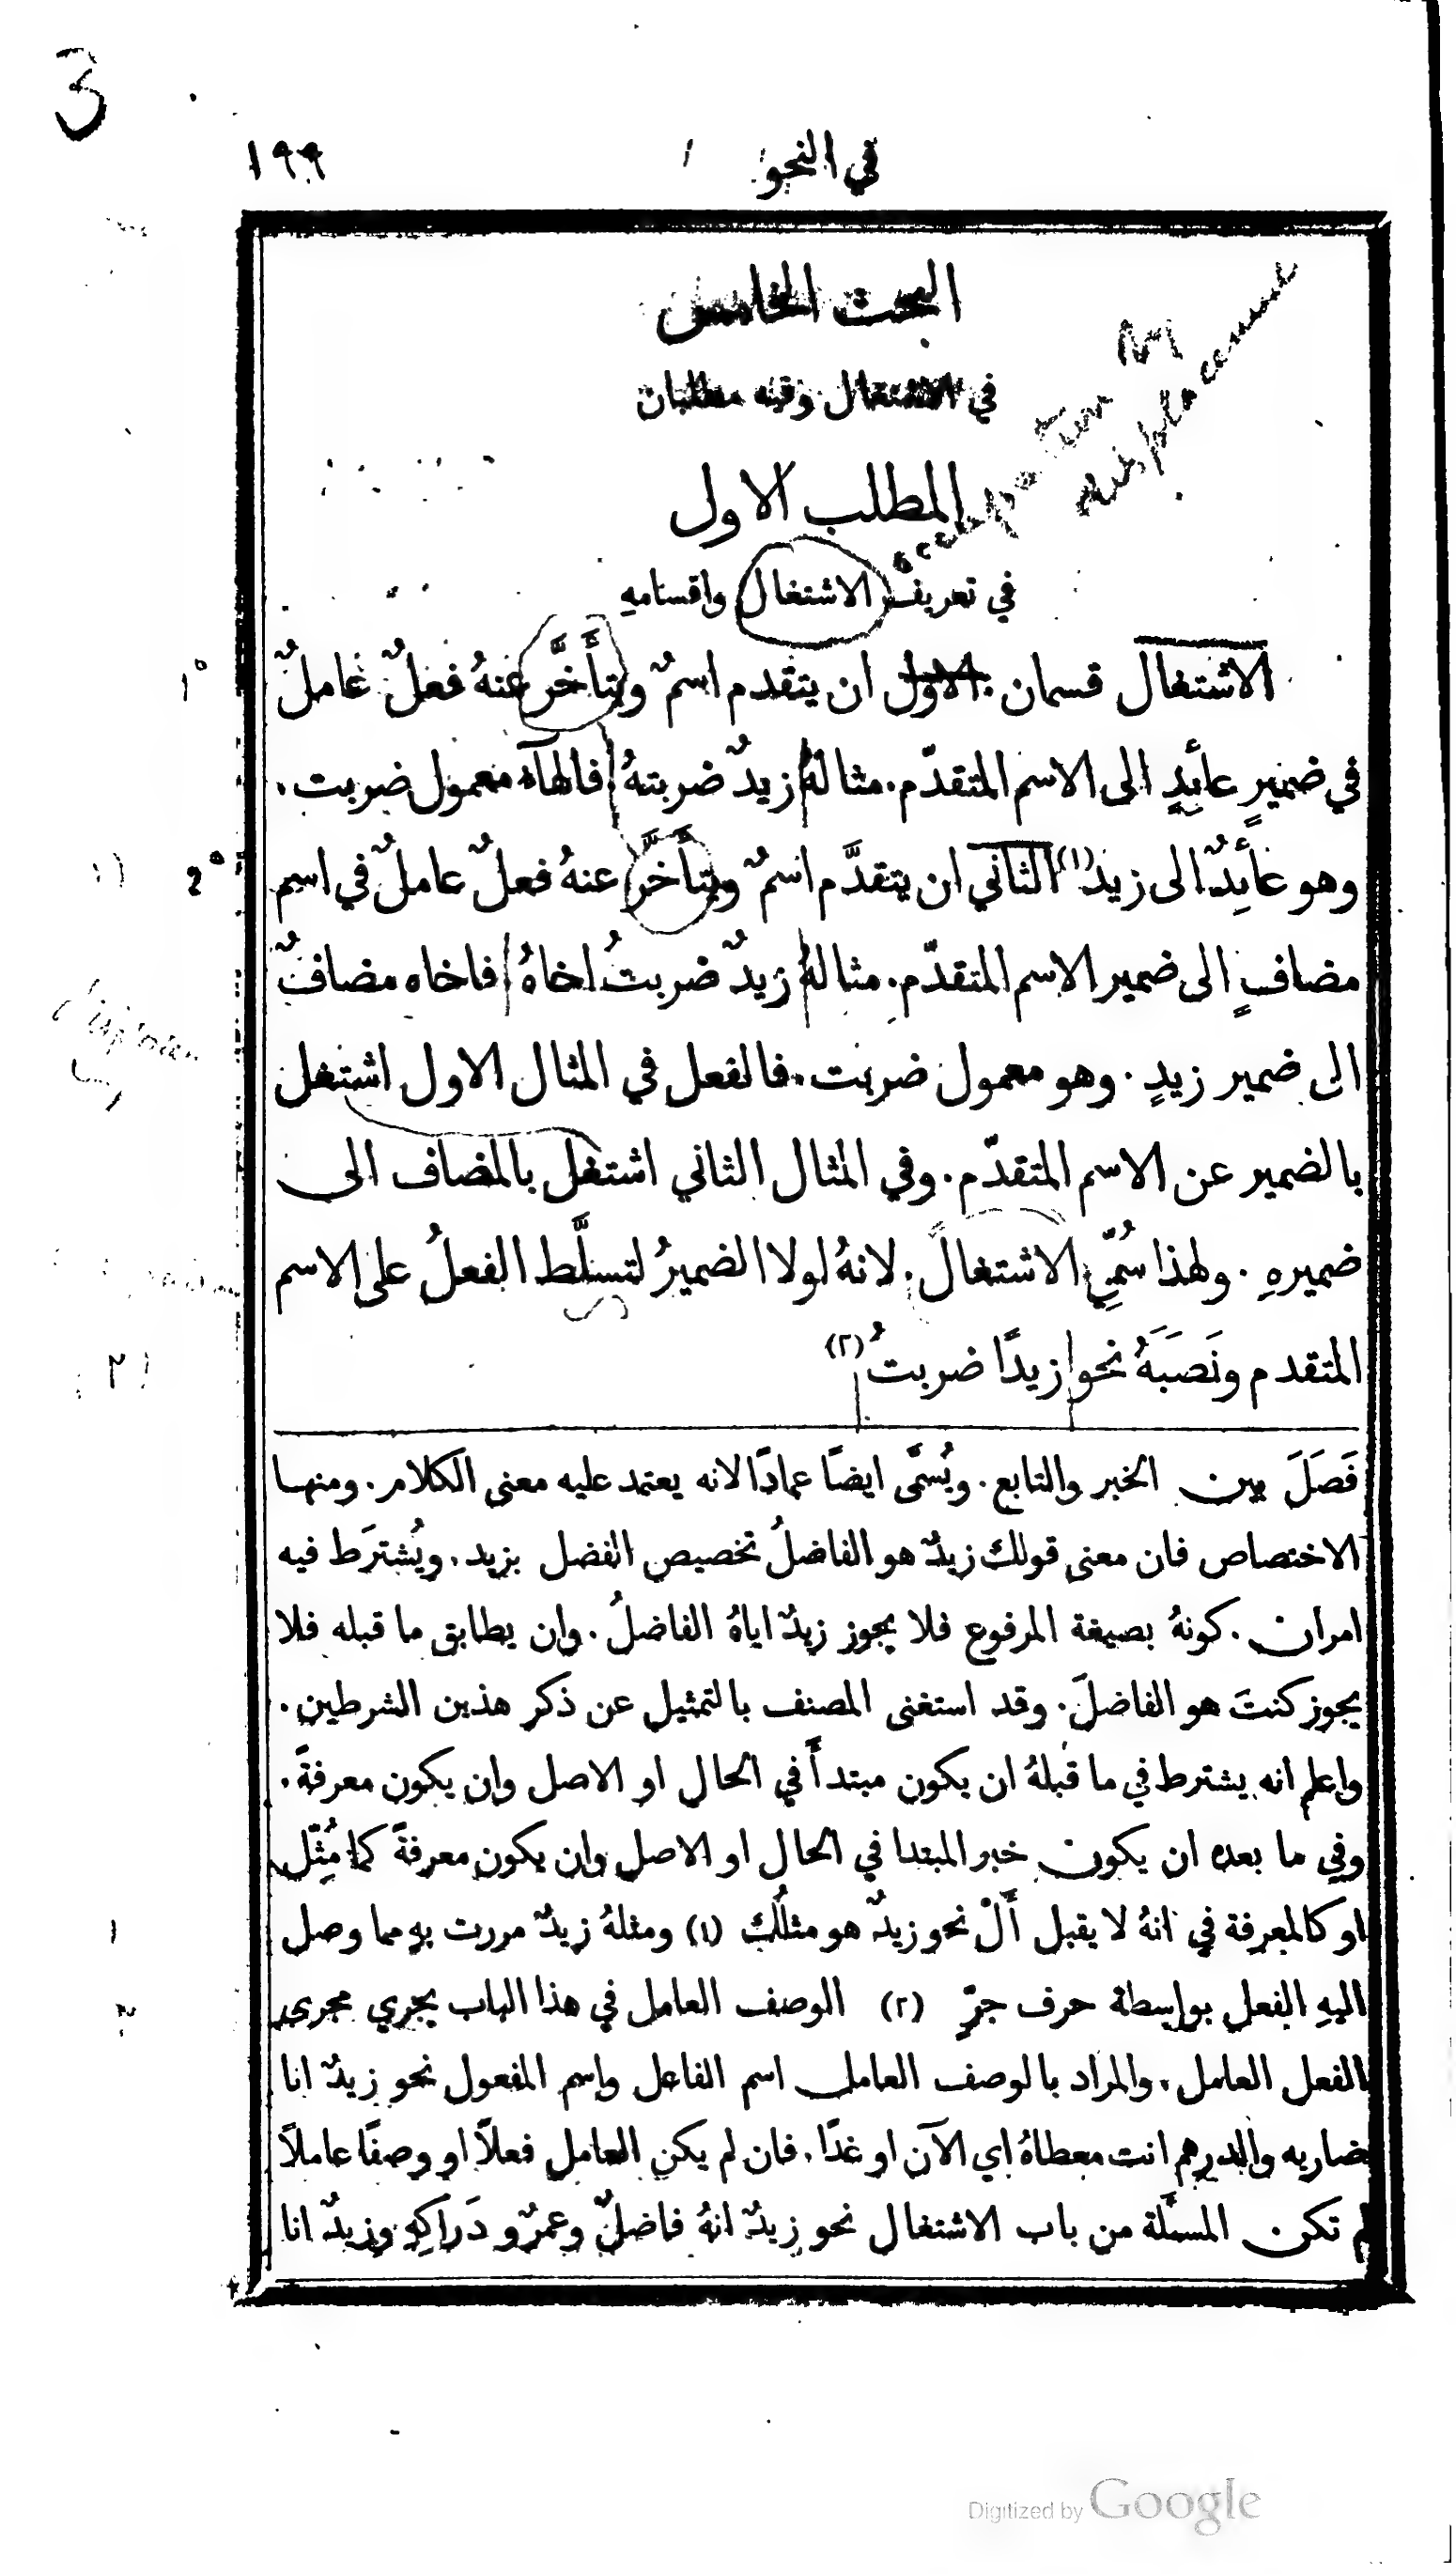 3
في النحو ١٩٩
البحث الخامس
في الاشتغال وفيه مطلبان
المطلب الاول
في تعريف الاشتغال واقسامهِ
الاشتغال قسمان . الاول ان يتقدم اسمٌ ويتأَخَّر عنهُ فعلٌ عاملٌ
في ضميرٍ عائِدٍ الى الاسم المتقدّم . مثالهُ زيدٌ ضربتهُ فالهآءُ معمول ضربت .
وهو عائِدٌ الى زيد (١) الثاني ان يتقدَّم اسمٌ ويتأَخَّر عنهُ فعلٌ عاملٌ في اسم
مضافٍ الى ضمير الاسم المتقدّم . مثالهُ زيدٌ ضربتُ اخاهُ فاخاه مضافٌ
الى ضمير زيدٍ . وهو معمول ضربت . فالفعل في المثال الاول اشتغل
بالضمير عن الاسم المتقدّم . وفي المثال الثاني اشتغل بالمضاف الى
ضميرهِ . ولهذا سُمِّي الاشتغالَ . لانهُ لولا الضميرُ لتسلَّط الفعلُ على الاسم
المتقدم ونَصَبَهُ نحو زيدًا ضربتُ (٢)
فَصَلَ بين الخبر والتابع . ويُسمَّى ايضًا عمادًا لانه يعتمد عليه معنى الكلام . ومنها
الاختصاص فان معنى قولك زيدٌ هو الفاضلُ تخصيص الفضل بزيد . ويُشترَط فيه
امران . كونهُ بصيغة المرفوع فلا يجوز زيدٌ اياهُ الفاضلُ . وان يطابق ما قبله فلا
يجوز كنتَ هو الفاضلَ . وقد استغنى المصنف بالتمثيل عن ذكر هذين الشرطين .
واعلم انه يشترط في ما قبلهُ ان يكون مبتدأً في الحال او الاصل وان يكون معرفةً .
وفي ما بعده ان يكون خبر المبتدا في الحال او الاصل وان يكون معرفةً كما مُثِّل
او كالمعرفة في انهُ لا يقبل أَلْ نحو زيدٌ هو مثلُك (١) ومثلهُ زيدٌ مررت بهِ مما وصل
اليهِ الفعل بواسطة حرف جرٍّ (٢) الوصف العامل في هذا الباب يجري مجرى
الفعل العامل . والمراد بالوصف العامل اسم الفاعل واسم المفعول نحو زيدٌ انا
ضاربه والدرهم انت معطاهُ اي الآن او غدًا . فان لم يكن العامل فعلًا او وصفًا عاملًا
لم تكن المسئَلة من باب الاشتغال نحو زيدٌ انهُ فاضلٌ وعمرٌو دَراكِهِ وزيدٌ انا
Digitized by Google